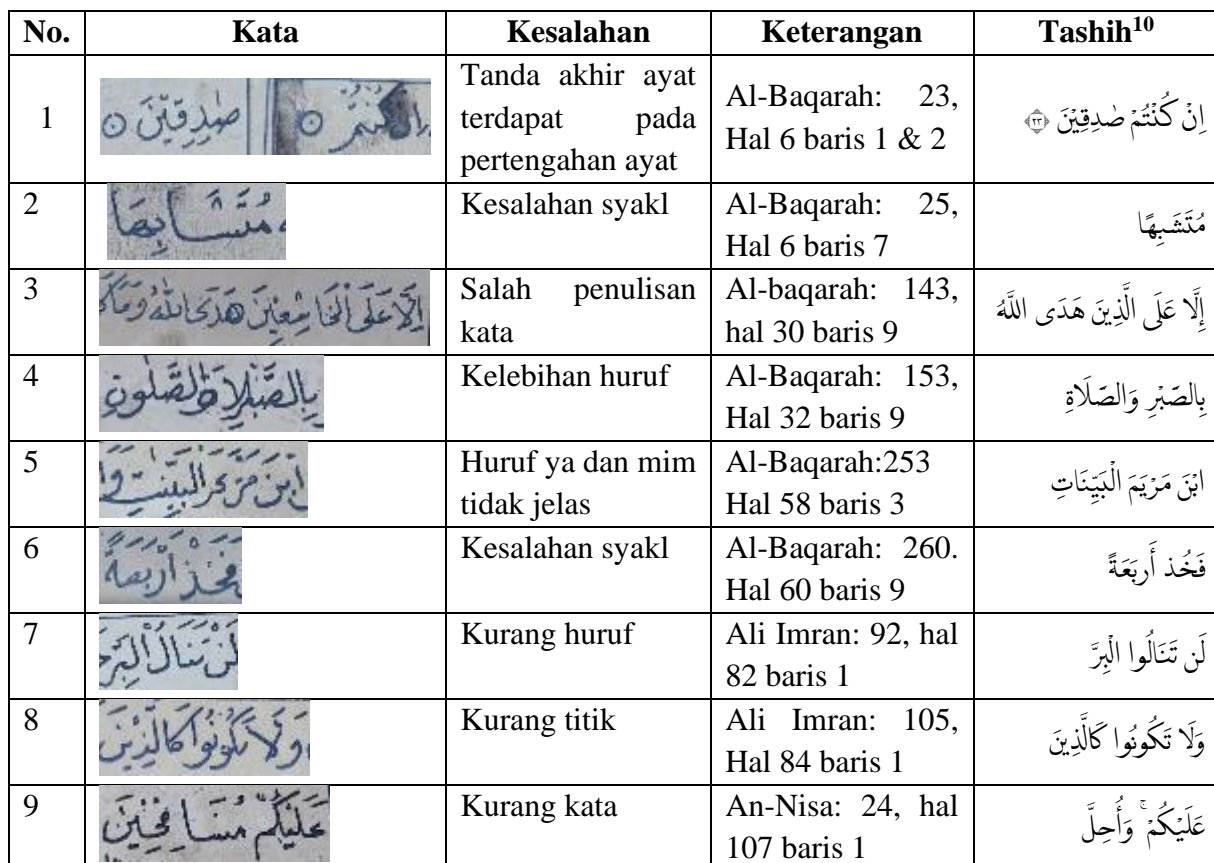 No. Kata Kesalahan Keterangan Tashih10
1
صٰدِقِيْنَ
اِنْ كُنْتُمْ
Tanda akhir ayat
terdapat pada
pertengahan ayat
Al-Baqarah: 23,
Hal 6 baris 1 & 2
اِنْ كُنْتُمْ صٰدِقِيْنَ ۝٢٣
2
مُتَشَابِهَا
Kesalahan syakl
Al-Baqarah: 25,
Hal 6 baris 7
مُتَشَبِهًا
3
اِلَّا عَلَى الْخَاشِعِيْنَ هَدَى اللّٰهُ وَمَا
Salah penulisan
kata
Al-baqarah: 143,
hal 30 baris 9
إِلَّا عَلَى الَّذِينَ هَدَى اللَّهُ
4
وَالصَّلٰوةِ
Kelebihan huruf
Al-Baqarah: 153,
Hal 32 baris 9
بِالصّبْرِ وَالصّلَاةِ
5
ابْنَ مَرْيَمَ الْبَيِّنٰتِ
Huruf ya dan mim
tidak jelas
Al-Baqarah:253
Hal 58 baris 3
ابْنَ مَرْيَمَ الْبَيِّنَاتِ
6
فَخُذْ اَرْبَعَةً
Kesalahan syakl
Al-Baqarah: 260.
Hal 60 baris 9
فَخُذ أَربَعَةً
7
لَنْ تَنَالُ الْبِرَّ
Kurang huruf
Ali Imran: 92, hal
82 baris 1
لَن تَنَالُوا الْبِرَّ
8
وَلَا تَكُوْنُوْا كَالَّذِيْنَ
Kurang titik
Ali Imran: 105,
Hal 84 baris 1
وَلَا تَكُونُوا كَالَّذِينَ
9
عَلَيْكُمْ مُسَافِحِيْنَ
Kurang kata
An-Nisa: 24, hal
107 baris 1
عَلَيْكُمْ ۚ وَأُحِلَّ